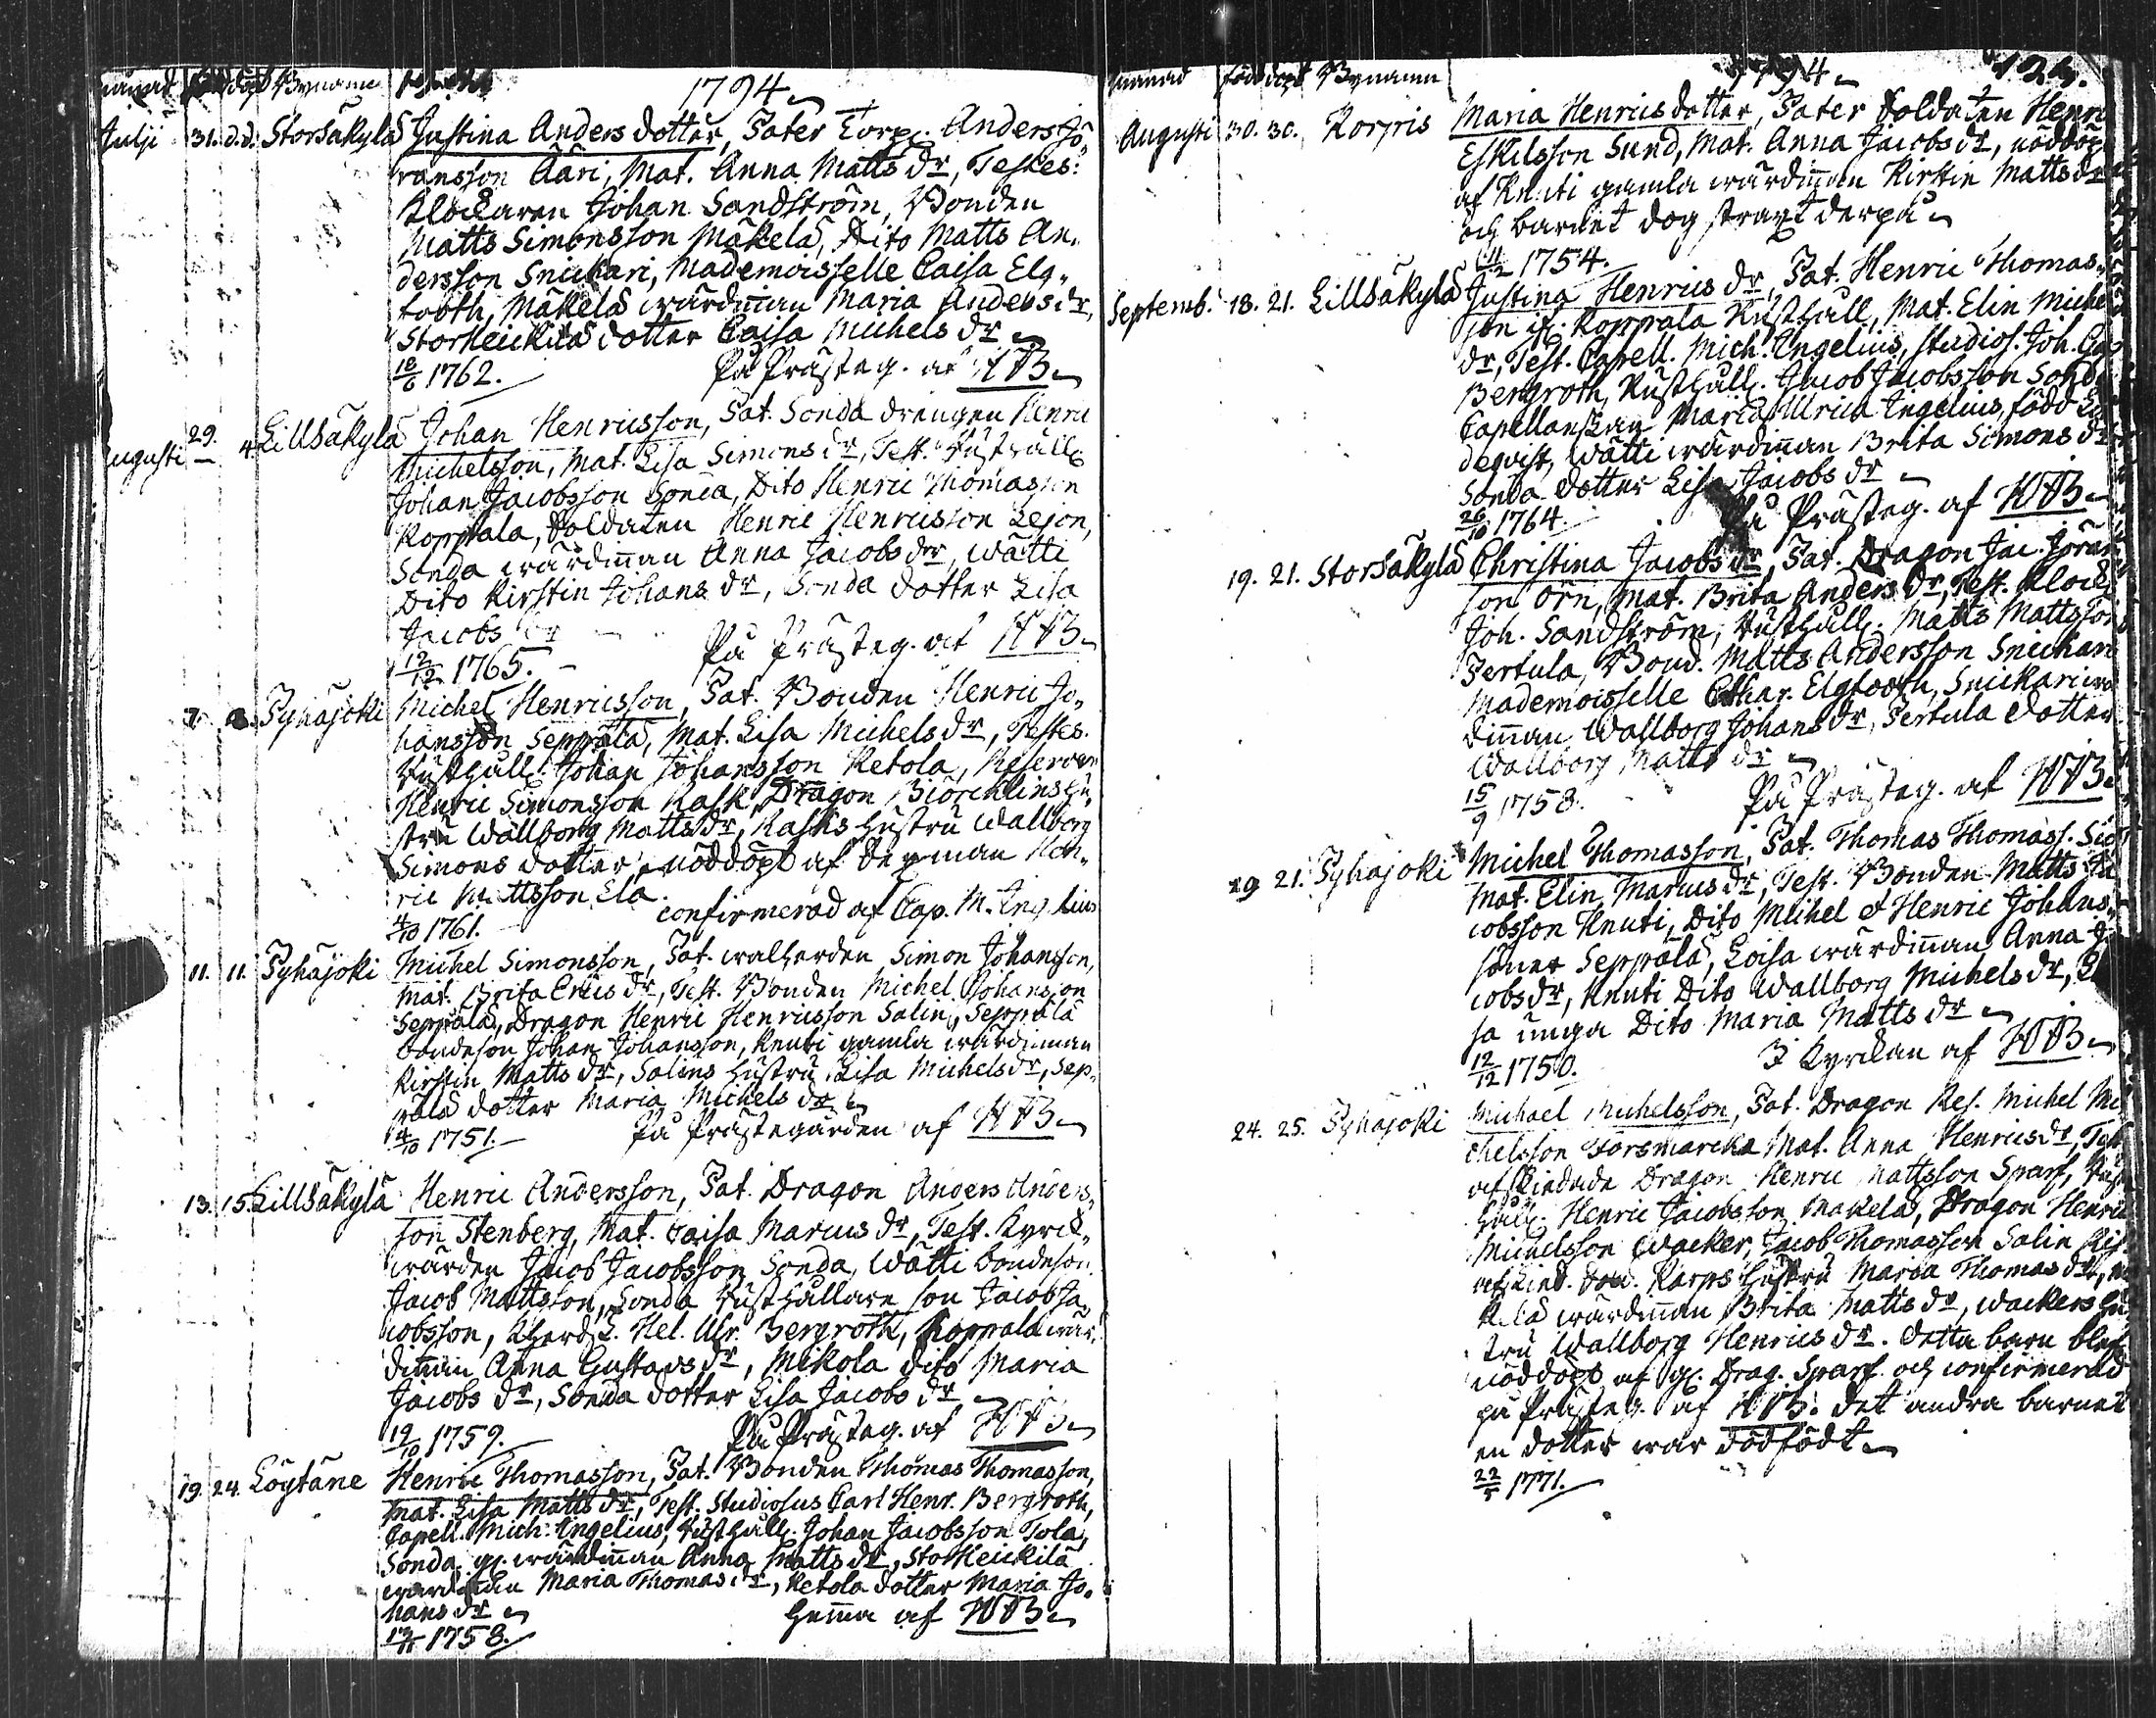 månad född döpt Bynamn
1794
Julji 31. d.d. Storsäkylä Justina Anders dotter, Pater Torp. Anders Jö,,
ransson Ääri, Mat. Anna Matts dr, Testes:
Klockaren Johan Sandström, Bonden
Matts Simonsson Mäkelä, Dito Matts An,,
dersson Snickari, Mademoisselle Caisa Elg,,
footh, Mäkelä wärdinnan Maria Anders dr,
StorHeickilä dotter Caisa Michels dr
18/6 1762. På Prästeg. af HVB
Augusti 29. 4 Lillsäkylä Johan Henricsson, Pat. Sonda drengen Henric
Michelsson, Mat. Lisa Simons dr, Test. Rusthåll.
Johan Jacobsson Sonda, Dito Henric Thomasson
Koppala, Soldaten Henric Henricsson Lejon,
Sonda wärdinnan Anna Jacobs dr, Wätti
Dito Kirstin Johans dr, Sonda dotter Lisa
Jacobs dr
12/12 1765. På Prästeg. af HVB
7. 8. Pyhäjoki Michel Henricsson, Pat. Bonden Henric Jo,,
hansson Seppälä, Mat. Lisa Michels dr, Testes.
Rusthåll. Johan Johansson Ketola, Reserven
Henric Simonsson Rask, Dragon Biörcklins hu,,
stru Wallborg Matts dr, Rasks hustru Wallborg
Simons dotter, nöddöpt af Hen,,
ric Mattsson Ela.
4/10 1761. confirmerad af Cap. M. Ingelius
11. 11. Pyhäjoki Michel Simonsson, Pat. walherden Simon Johansson,
Mat. Brita Erics dr, Test. Bonden Michel Johansson
Seppälä, Dragon Henric Henricsson Salin, Seppälä
bondeson Johan Johansson, Knuti gamla wärdinnan
Kirstin Matts dr, Salins hustru Lisa Michels dr, Sep,,
pälä dotter Maria Michels dr
4/10 1751. På Prästegården af HVB
13. 15. Lillsäkylä Henric Andersson, Pat. Dragon Anders Anders,,
son Stenberg, Mat. Caisa Marcus dr, Test. Kyrck,,
wärden Jacob Jacobsson Sonda, Wätti bondeson
Jacob Mattsson, Sonda Rusthållare son Jacob Ja,,
cobsson, Hel. Ulr. Bergroth, Koppala wär,,
dinnan Anna Gustavs dr, Mikola dito Maria
Jacobs dr, Sonda dotter Lisa Jacobs dr
19/10 1759. På Prästeg. af HVB
19. 24. Löytäne Henric Thomasson, Pat. Bonden Thomas Thomasson,
Mat. Lisa Matts dr, Test. Studiosus Carl Henr. Bergroth,
Capell. Mich. Ingelius, Rusthåll. Johan Jacobsson Tola,
Sonda gl. wärdinnan Anna Matts dr, StorHeickilä
wärdinnan Maria Thomas dr, Ketola dotter Maria Jo,,
hans dr
Hemma af HVB
1758.
månad född döpt Bynamn
1794
Augusti 30. 30. Korpris Maria Henrics dotter, Pater Soldaten Henr
Eskilsson Sund, Mat. Anna Jacobs dr, nöddöp
af Knuti gamla wärdinnan Kirstin Matts dr
och barnet dog straxt derpå
1754.
Septemb. 18. 21. Lillsäkylä Justina Henrics dr, Pat. Henric Thomas,,
son gl. Koppala Rusthåll, Mat. Elin Michel
dr, Test. Capell. Mich. Ingelius, Studios. Joh.
Bergroth, Rusthåll. Jacob Jacobsson Sonda
Capellanskan Maria Ulrica Ingelius, född
deqvist, Wätti wärdinnan Brita Simons dr
Sonda dotter Lisa Jacobs dr
26/10 1764. På Prästeg. af HVB
19. 21. Storsäkylä Christina Jacobs dr, Pat. Dragon Jac. Jöran
son Örn, Mat. Brita Anders dr, Test. Klock
Joh. Sandström, Rusthåll. Matts Mattsson
Pertula, Bond. Matts Andersson Snickari
Mademoisselle Cathar. Elgfooth, Snickari wä
dinnan Wallborg Johans dr, Pertula dotter
Wallborg Matts dr
15/9 1758. På Prästeg. af HVB
19 21. Pyhäjoki Michel Thomasson, Pat. Thomas Thomass.
Mat. Elin Marcus dr, Test. Bonden Matts Ja
cobsson Knuti, Dito Michel et Henric Johans,,
söner Seppälä, Loisa wärdinnan Anna Ja
cobs dr, Knuti Dito Wallborg Michels dr,
sa unga Dito Maria Matts dr
12/12 1750. I Kyrckan af HVB
24. 25. Pyhäjoki Michael Michelsson, Pat. Dragon Res. Michel Mi
chelsson Forsmarcka Mat. Anna Henrics dr, Test
afskedade Dragon Henric Mattsson Sparf, Rust
håll. Henric Jacobsson Mäkelä, Dragon Henric
Michelsson Wacker, Jacob Thomasson Salin
Karps hustru Maria Thomas dr, Mä
kelä wärdinnan Brita Matts dr, Wackers hu
stru Wallborg Henrics dr. Detta barn blef
nöddöpt af gl. Drag. Sparf och confirmerad
på Prästeg. af HVB. det andra barnet
en dotter war dödfödt
22/5 1771.